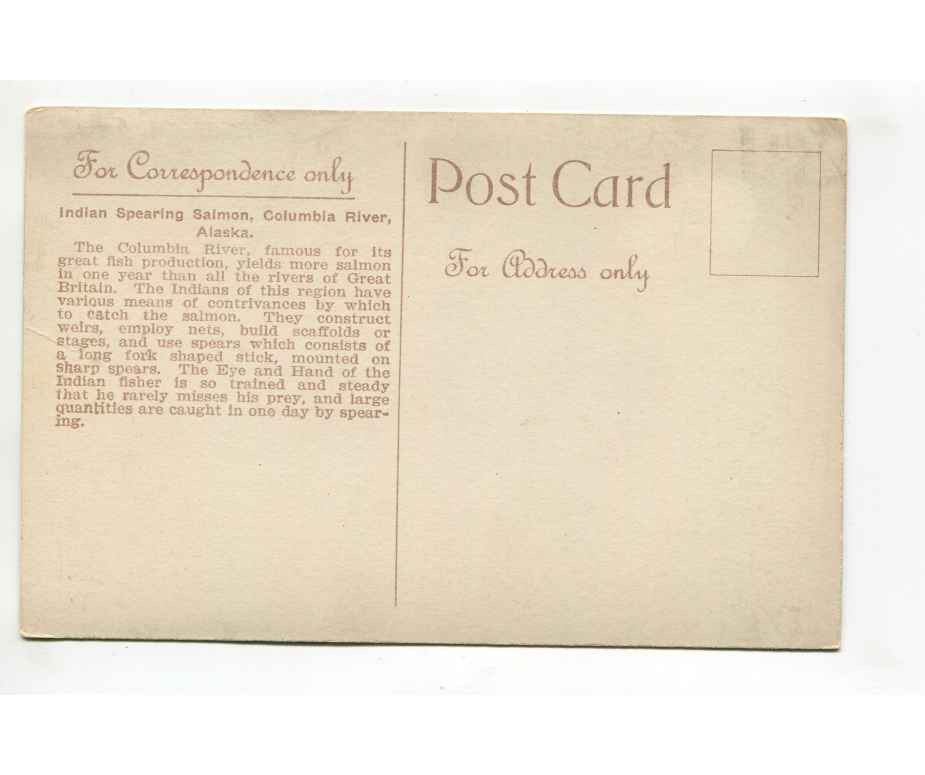 For Correspondence only
Indian Spearing Salmon, Columbia River,
Alaska.
The Columbia River, famous for its
great fish production, yields more salmon
in one year than all the rivers of Great
Britain. The Indians of this region have
various means of contrivances by which
to catch the salmon. They construct
weirs, employ nets, build scaffolds or
stages, and use spears which consists of
a long fork shaped stick, mounted on
sharp spears. The Eye and Hand of the
Indian fisher is so trained and steady
that he rarely misses his prey, and large
quantities are caught in one day by spear-
ing.
Post Card
For Address only